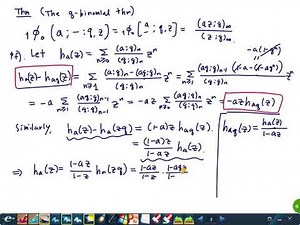 Thm (The q-binomial thm)
₁φ₀(a; -; q, z) = ₁φ₀[a; -; q, z] = (az;q)∞ / (z;q)∞.
Pf. Let hₐ(z) = Σ_{n≥0} (a;q)ₙ/(q;q)ₙ zⁿ
hₐ(z) - h_{aq}(z) = Σ_{n≥0} (a;q)ₙ-(aq;q)ₙ / (q;q)ₙ zⁿ = Σ_{n≥1} (aq;q)ₙ₋₁/(q;q)ₙ (1-a-(1-aqⁿ)) zⁿ
-a(1-qⁿ)
= -a Σ_{n≥1} (aq;q)ₙ₋₁/(q;q)ₙ₋₁ zⁿ = -az Σ_{n≥0} (aq;q)ₙ/(q;q)ₙ zⁿ = -az h_{aq}(z)
Similarly, hₐ(z) - hₐ(zq) = (1-a)z h_{aq}(z). h_{aq}(z) = hₐ(z)/(1-az)
= (1-a)z/(1-az) hₐ(z).
⇒ hₐ(z) = (1-az)/(1-z) hₐ(zq) = (1-az)/(1-z) ·